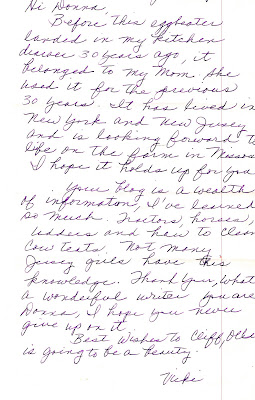 Hi Donna,
Before this eggbeater
landed in my kitchen
drawer 30 years ago, it
belonged to my Mom. She
used it for the previous
30 years. It has lived in
New York and New Jersey
and is looking forward to
life on the farm in Missou
I hope it holds up for you
Your blog is a wealth
of information, I've learned
so much. Tractors, horses,
udders and how to clean
Cow teats. Not many
Jersey girls have this
knowledge. Thank you, what
a wonderful writer you are
Donna, I hope you never
give up on it.
Best Wishes to Cliff,
is going to be a beauty.
Vicki